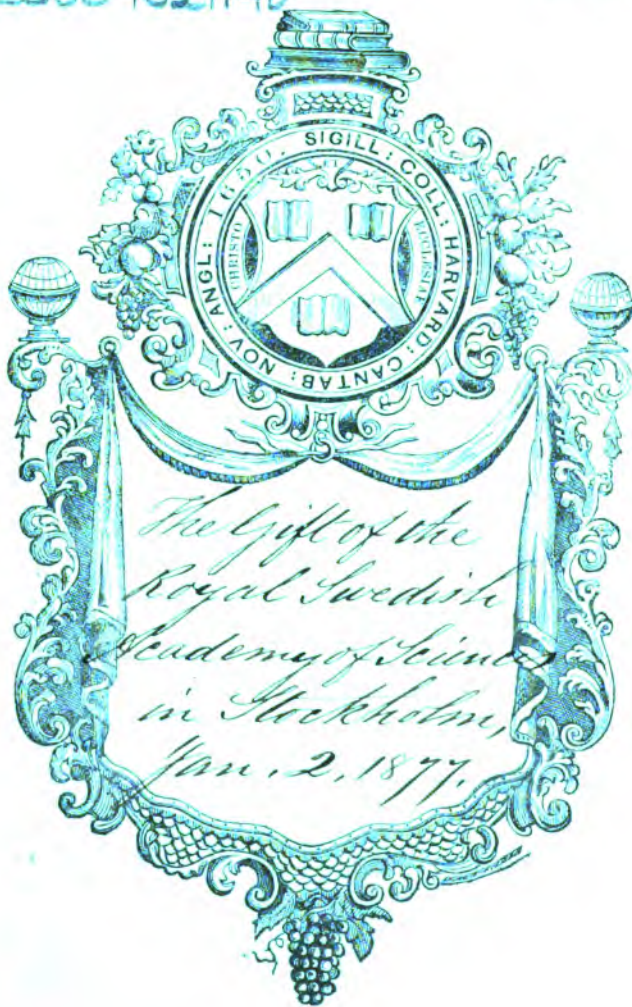 SIGILL: COLL: HARVARD: CANTAB: NOV: ANGL: 1650.
CHRISTO
ECCLESIAE
The Gift of the
Royal Swedish
Academy of Science
in Stockholm,
Jan. 2, 1877.